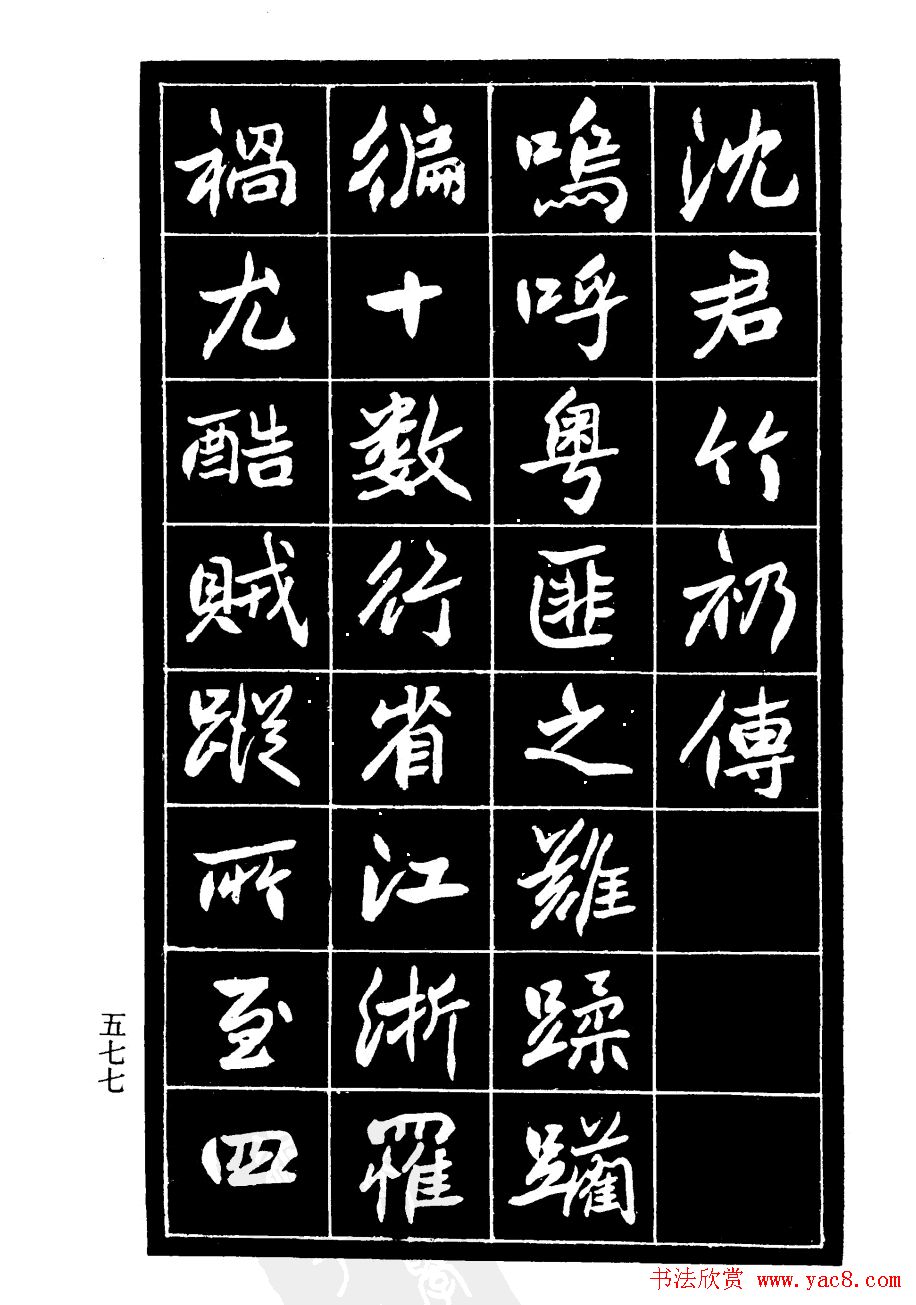 沈君竹礽傳
嗚呼粵匪之難蹂躪
徧十數行省江浙罹
禍尤酷賊蹤所至四
五七七
书法欣赏 www.yac8.com